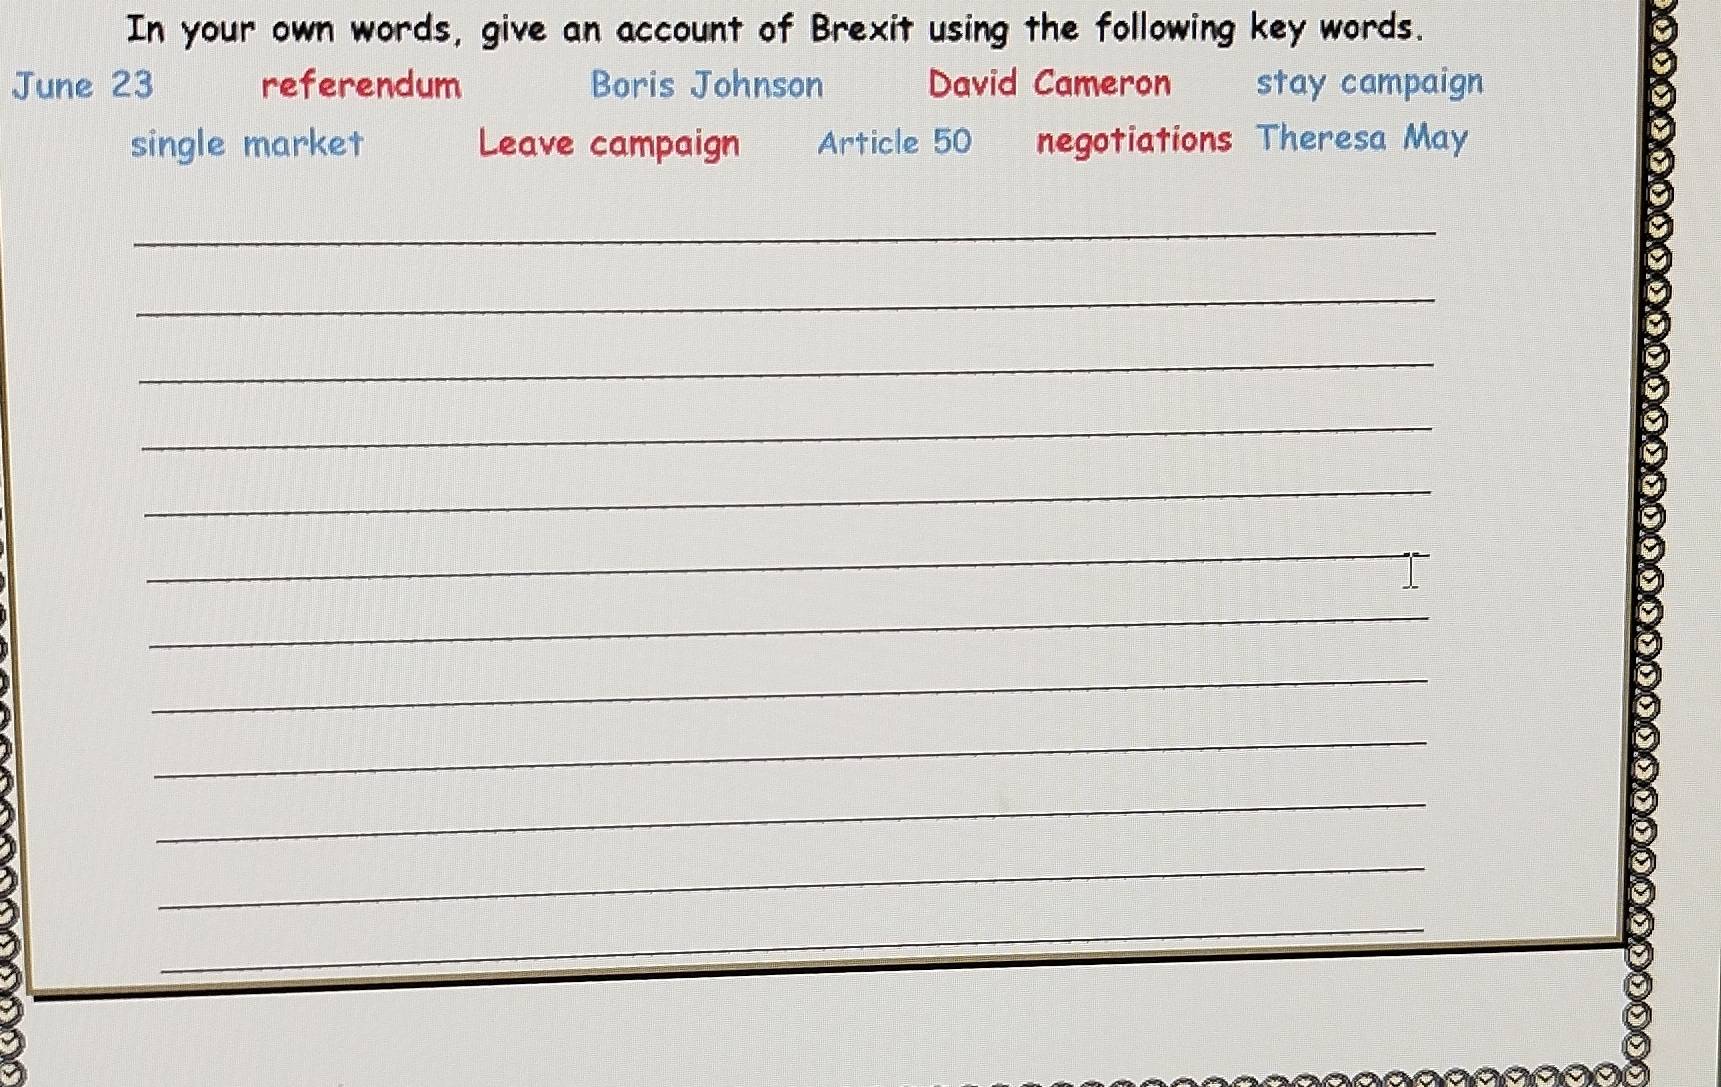 In your own words, give an account of Brexit using the following key words.
June 23 referendum Boris Johnson David Cameron stay campaign
single market Leave campaign Article 50 negotiations Theresa May